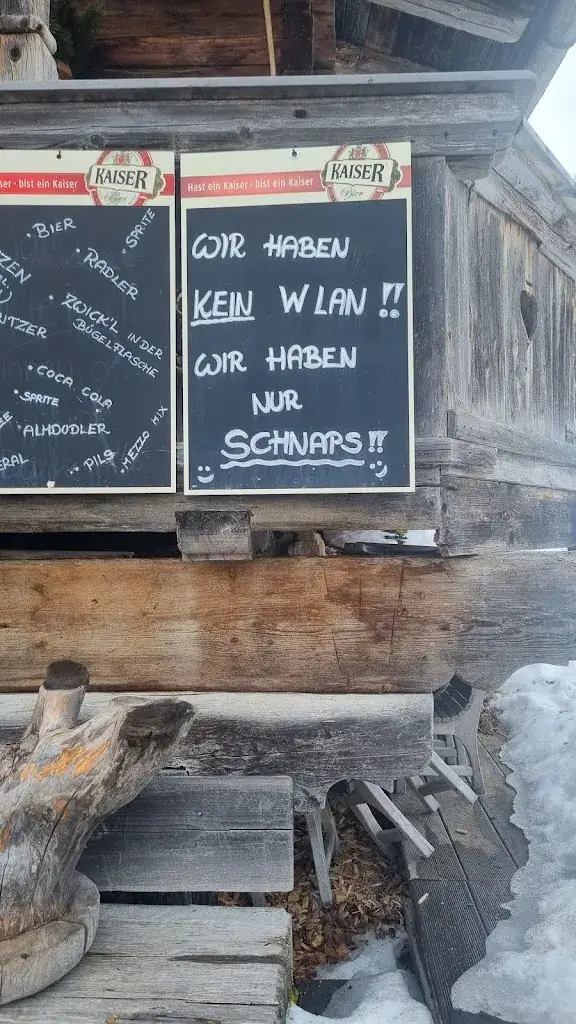 ser - bist ein Kaiser
KAISER
Bier
• BIER
• SPRITE
• RADLER
• ZWICK'L IN DER
BÜGELFLASCHE
• COCA COLA
• SPRITE
• ALMDUDLER
• PILS
• MEZZO MIX
Hast ein Kaiser - bist ein Kaiser
KAISER
Bier
WIR HABEN
KEIN WLAN !!
WIR HABEN
NUR
SCHNAPS !!